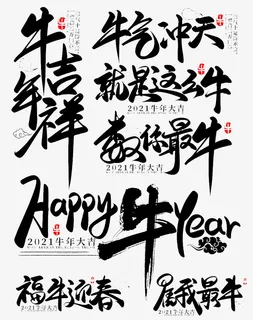 牛年吉祥
牛气冲天
就是这么牛
2021牛年大吉
数你最牛
2021牛年大吉
Happy 牛 Year
2021牛年大吉
福牛迎春
2021牛年大吉
属我最牛
2021牛年大吉